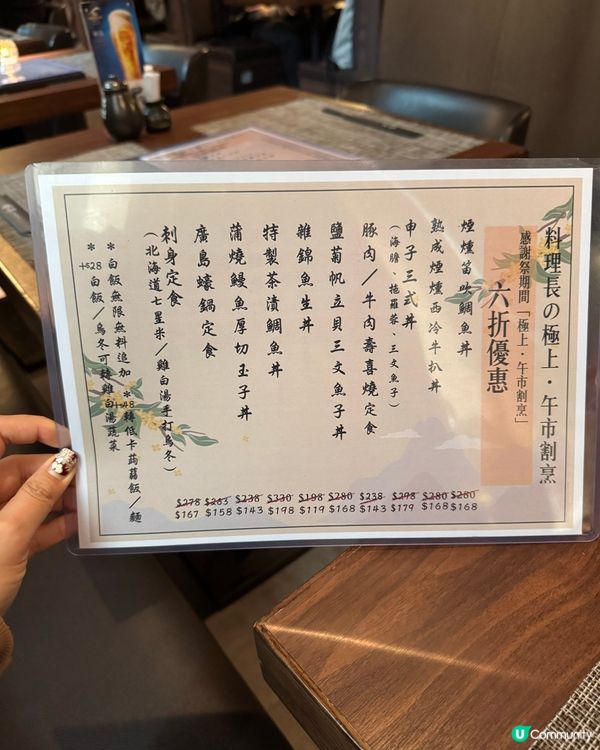 料理長の極上・午市割烹
感謝祭期間「極上・午市割烹」
六折優惠
煙燻笛吹鯛魚丼
$280
$168
熟成煙燻西冷牛扒丼
$280
$168
申子三式丼
(海膽、拖羅蓉、三文魚子)
$298
$179
豚肉/牛肉壽喜燒定食
$238
$143
鹽菊帆立貝三文魚子丼
$280
$168
雜錦魚生丼
$198
$119
特製茶漬鯛魚丼
$330
$198
蒲燒鰻魚厚切玉子丼
$238
$143
廣島蠔鍋定食
$263
$158
刺身定食
(北海道七星米/雞白湯手打烏冬)
$278
$167
*白飯無限無料追加
*+$48轉低卡蒟蒻飯/麵
*+$28白飯/烏冬可轉雞白湯蔬菜
U Community